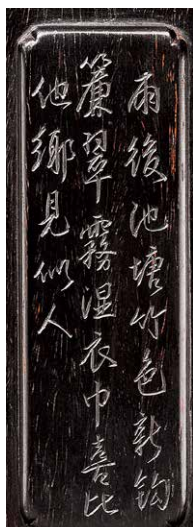 雨後池塘竹色新鈎
簾翠霧湿衣巾喜比
他鄉見似人